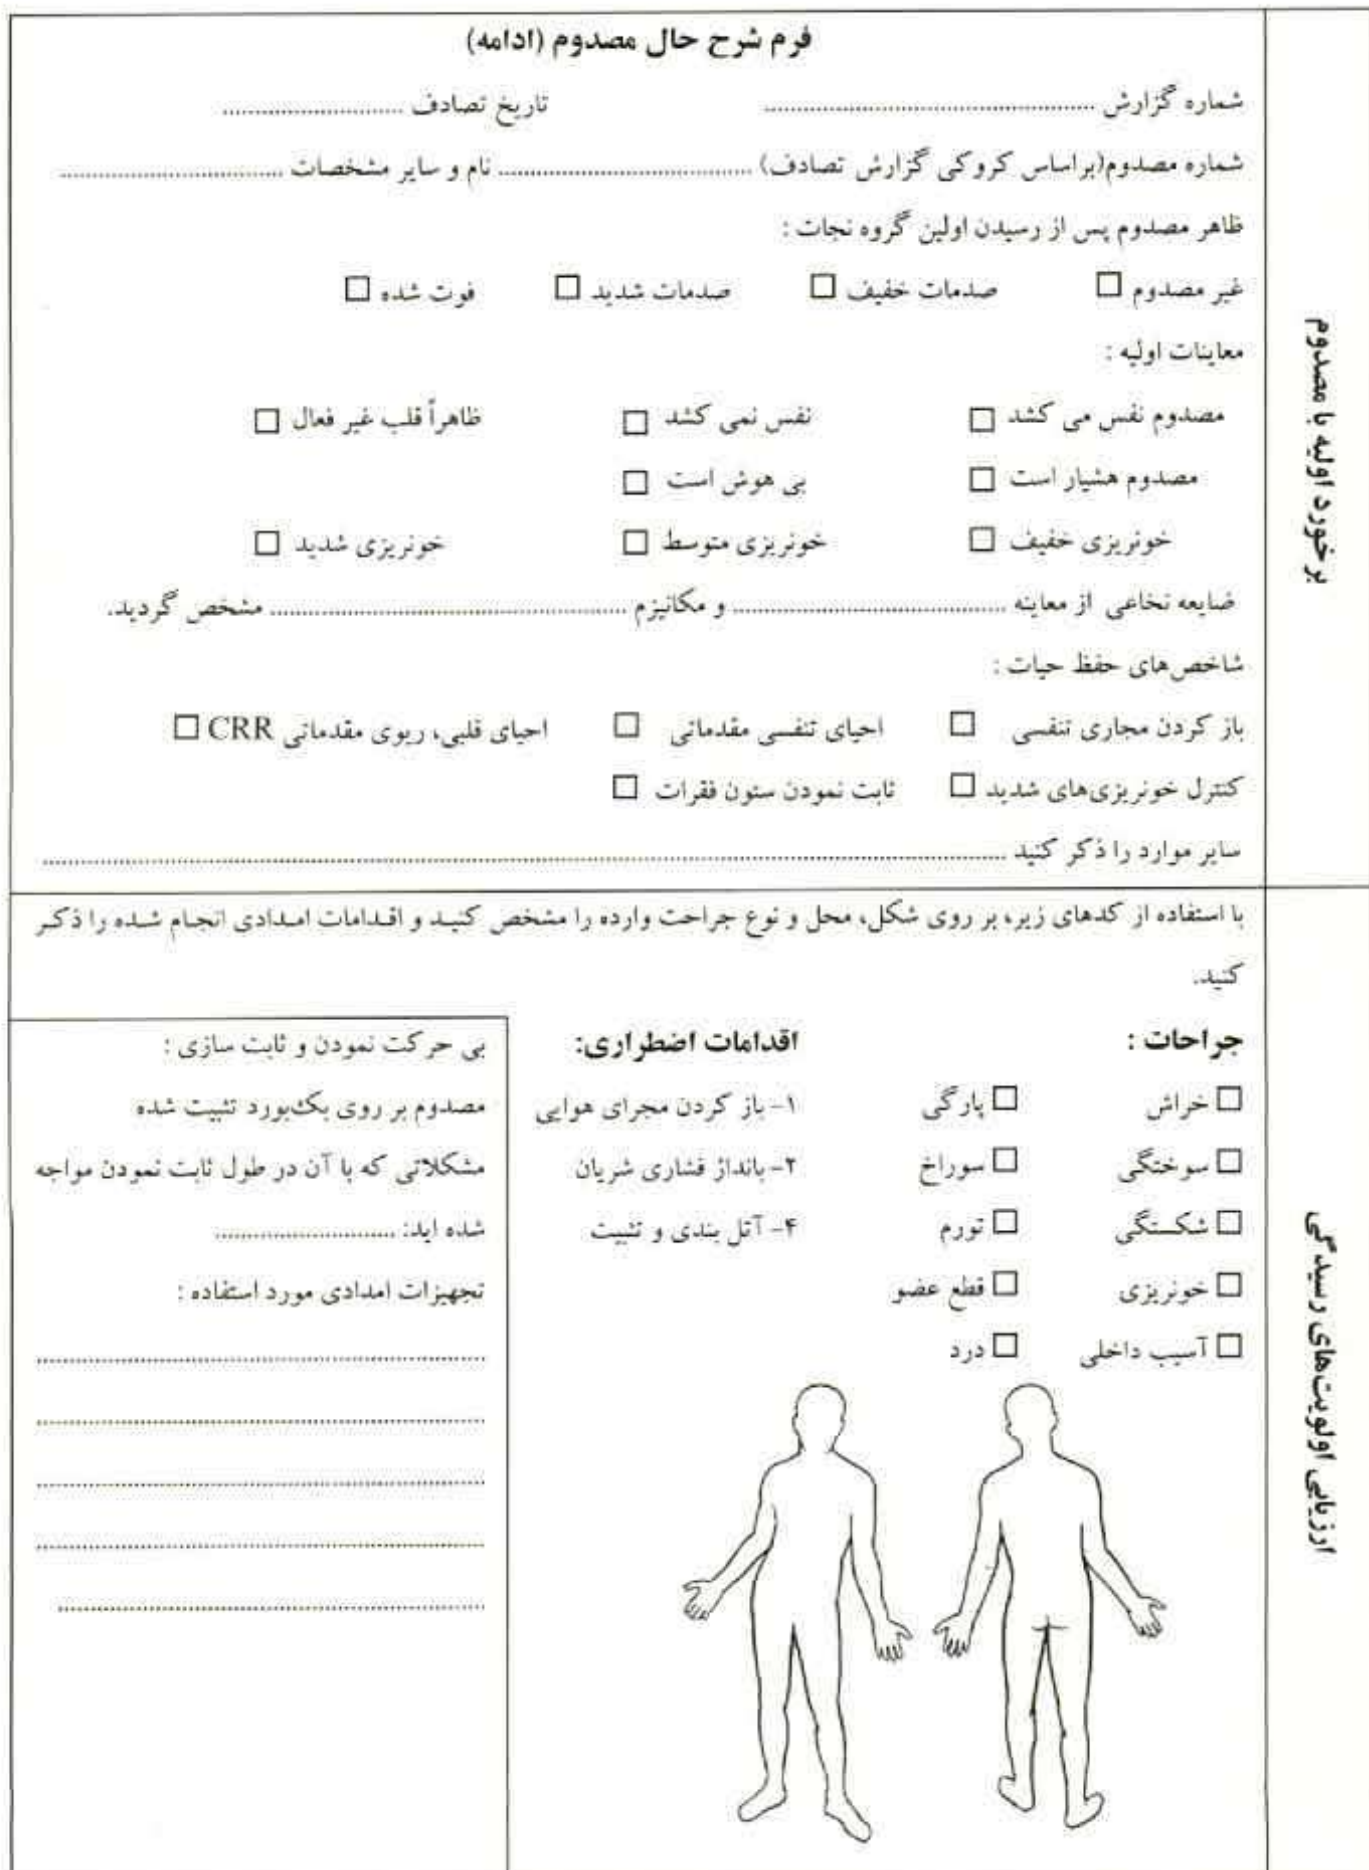 فرم شرح حال مصدوم (ادامه)
شماره گزارش ........................ تاریخ تصادف ........................
شماره مصدوم(براساس کروکی گزارش تصادف) ........................ نام و سایر مشخصات ........................
ظاهر مصدوم پس از رسیدن اولین گروه نجات :
غیر مصدوم □ صدمات خفیف □ صدمات شدید □ فوت شده □
معاینات اولیه :
مصدوم نفس می کشد □ نفس نمی کشد □ ظاهراً قلب غیر فعال □
مصدوم هشیار است □ بی هوش است □
خونریزی خفیف □ خونریزی متوسط □ خونریزی شدید □
ضایعه نخاعی از معاینه ........................ و مکانیزم ........................ مشخص گردید.
شاخص‌های حفظ حیات :
باز کردن مجاری تنفسی □ احیای تنفسی مقدماتی □ احیای قلبی، ریوی مقدماتی CRR □
کنترل خونریزی‌های شدید □ ثابت نمودن ستون فقرات □
سایر موارد را ذکر کنید ........................
برخورد اولیه با مصدوم
با استفاده از کدهای زیر، بر روی شکل، محل و نوع جراحت وارده را مشخص کنید و اقدامات امدادی انجام شده را ذکر
کنید.
جراحات : اقدامات اضطراری:
□ خراش □ پارگی ۱- باز کردن مجرای هوایی
□ سوختگی □ سوراخ ۲- بانداژ فشاری شریان
□ شکستگی □ تورم ۴- آتل بندی و تثبیت
□ خونریزی □ قطع عضو
□ آسیب داخلی □ درد
بی حرکت نمودن و ثابت سازی :
مصدوم بر روی بک‌بورد تثبیت شده
مشکلاتی که با آن در طول ثابت نمودن مواجه
شده اید: ........................
تجهیزات امدادی مورد استفاده :
ارزیابی اولویت‌های رسیدگی